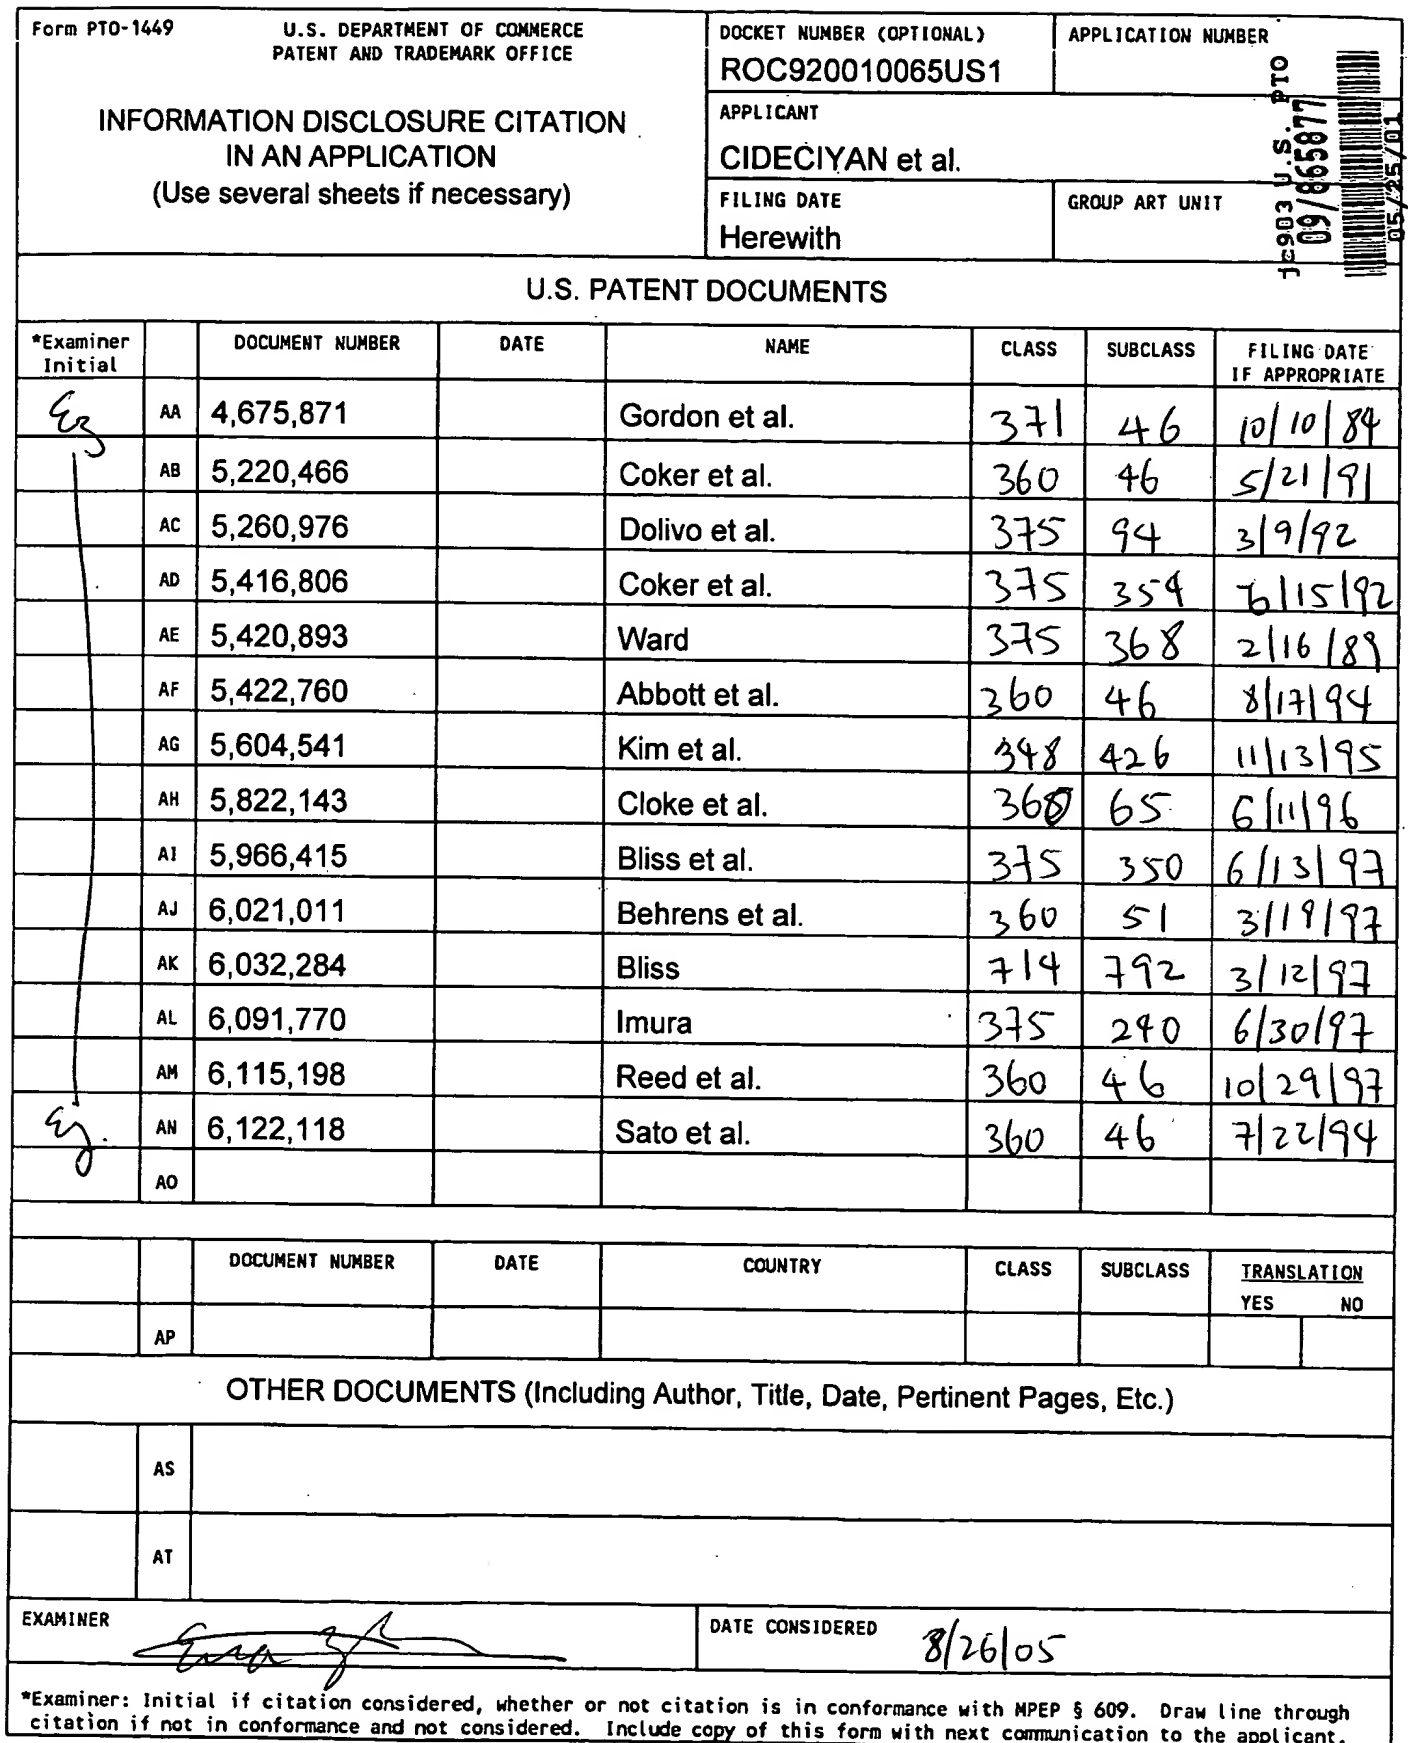 Form PTO-1449
U.S. DEPARTMENT OF COMMERCE
PATENT AND TRADEMARK OFFICE
INFORMATION DISCLOSURE CITATION
IN AN APPLICATION
(Use several sheets if necessary)
DOCKET NUMBER (OPTIONAL)
ROC920010065US1
APPLICATION NUMBER
APPLICANT
CIDECIYAN et al.
FILING DATE
Herewith
GROUP ART UNIT
jc903 U.S. PTO
09/865877
05/25/01
U.S. PATENT DOCUMENTS
*Examiner Initial DOCUMENT NUMBER DATE NAME CLASS SUBCLASS FILING DATE IF APPROPRIATE
EZ AA 4,675,871 Gordon et al. 371 46 10/10/84
AB 5,220,466 Coker et al. 360 46 5/21/91
AC 5,260,976 Dolivo et al. 375 94 3/9/92
AD 5,416,806 Coker et al. 375 354 6/15/92
AE 5,420,893 Ward 375 368 2/16/89
AF 5,422,760 Abbott et al. 360 46 8/17/94
AG 5,604,541 Kim et al. 348 426 11/13/95
AH 5,822,143 Cloke et al. 360 65 6/11/96
AI 5,966,415 Bliss et al. 375 350 6/13/97
AJ 6,021,011 Behrens et al. 360 51 3/19/97
AK 6,032,284 Bliss 714 792 3/12/97
AL 6,091,770 Imura 375 240 6/30/97
AM 6,115,198 Reed et al. 360 46 10/29/97
EZ. AN 6,122,118 Sato et al. 360 46 7/22/94
AO
DOCUMENT NUMBER DATE COUNTRY CLASS SUBCLASS TRANSLATION
YES NO
AP
OTHER DOCUMENTS (Including Author, Title, Date, Pertinent Pages, Etc.)
AS
AT
EXAMINER
DATE CONSIDERED 8/26/05
*Examiner: Initial if citation considered, whether or not citation is in conformance with MPEP § 609. Draw line through
citation if not in conformance and not considered. Include copy of this form with next communication to the applicant.